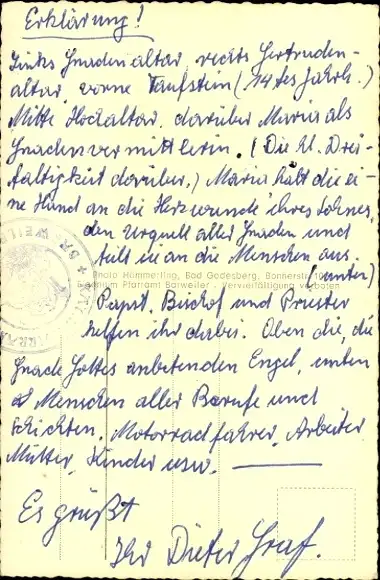 Erklärung!
Links Gnadenaltar, rechts Gertruden-
altar, vorne Taufstein (14tes Jahrh.)
Mitte Hochaltar, darüber Maria als
Gnadenvermittlerin. (Die hl. Drei-
faltigkeit darüber.) Maria hält die ei-
ne Hand an die Herzwunde ihres Sohnes,
den Urquell aller Gnaden und
teilt sie an die Menschen aus.
Photo Hämmerling, Bad Godesberg,
Pfarramt Barweiler - Vervielfältigung verboten
(unten)
Papst, Bischof und Priester
helfen ihr dabei. Oben die, die
Gnade Gottes anbetenden Engel, unten
Menschen aller Berufe und
Schichten. Motorradfahrer, Arbeiter
Mütter, Kinder usw.
Es grüßt
Ihr Dieter Graf.